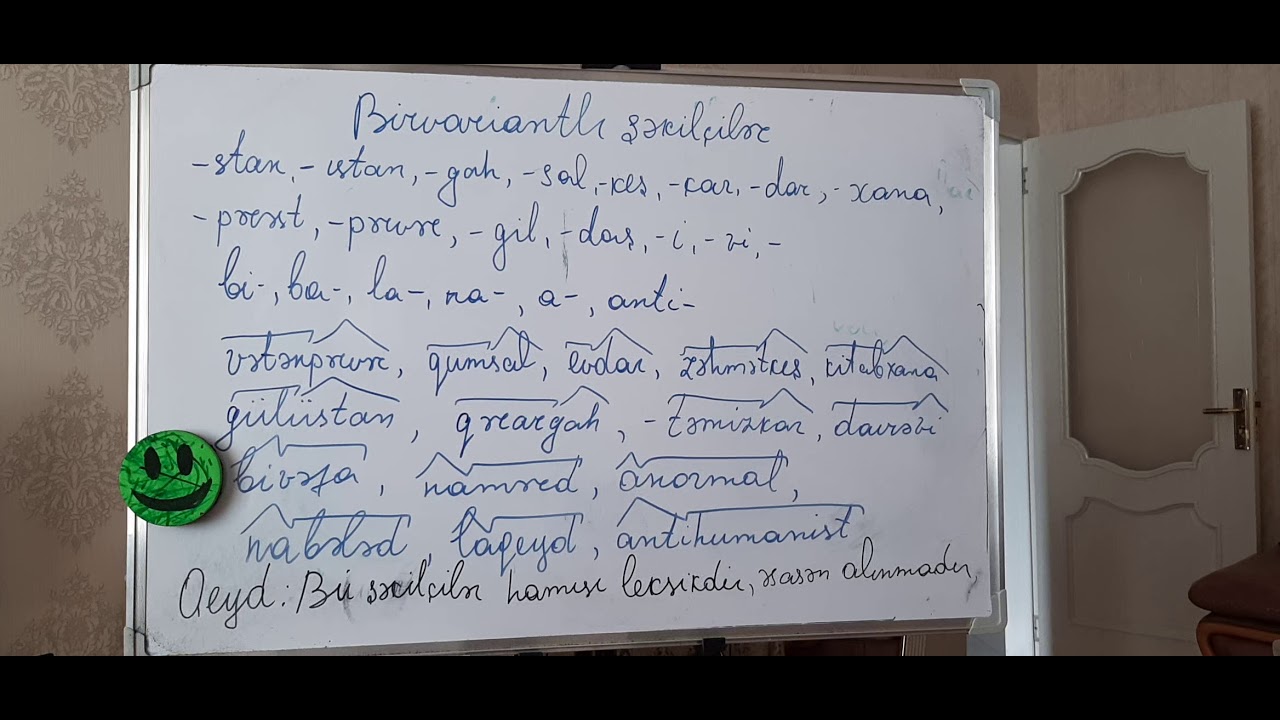 Birvariantlı şəkilçilər
-stan, -ıstan, -gah, -sal, -keş, -kar, -dar, -xana,
-pərəst, -pərvər, -gil, -daş, -i, -vi, -
bi-, ba-, la-, na-, a-, anti-
vətənpərvər, qumsal, evdar, zəhmətkeş, kitabxana
gülüstan, qərargah, -təmizkar, dairəvi
bivəfa, namərd, anormal,
nabələd, laqeyd, antihumanist
Qeyd: Bu şəkilçilər hamısı leksikdir, əsasən alınmadır,